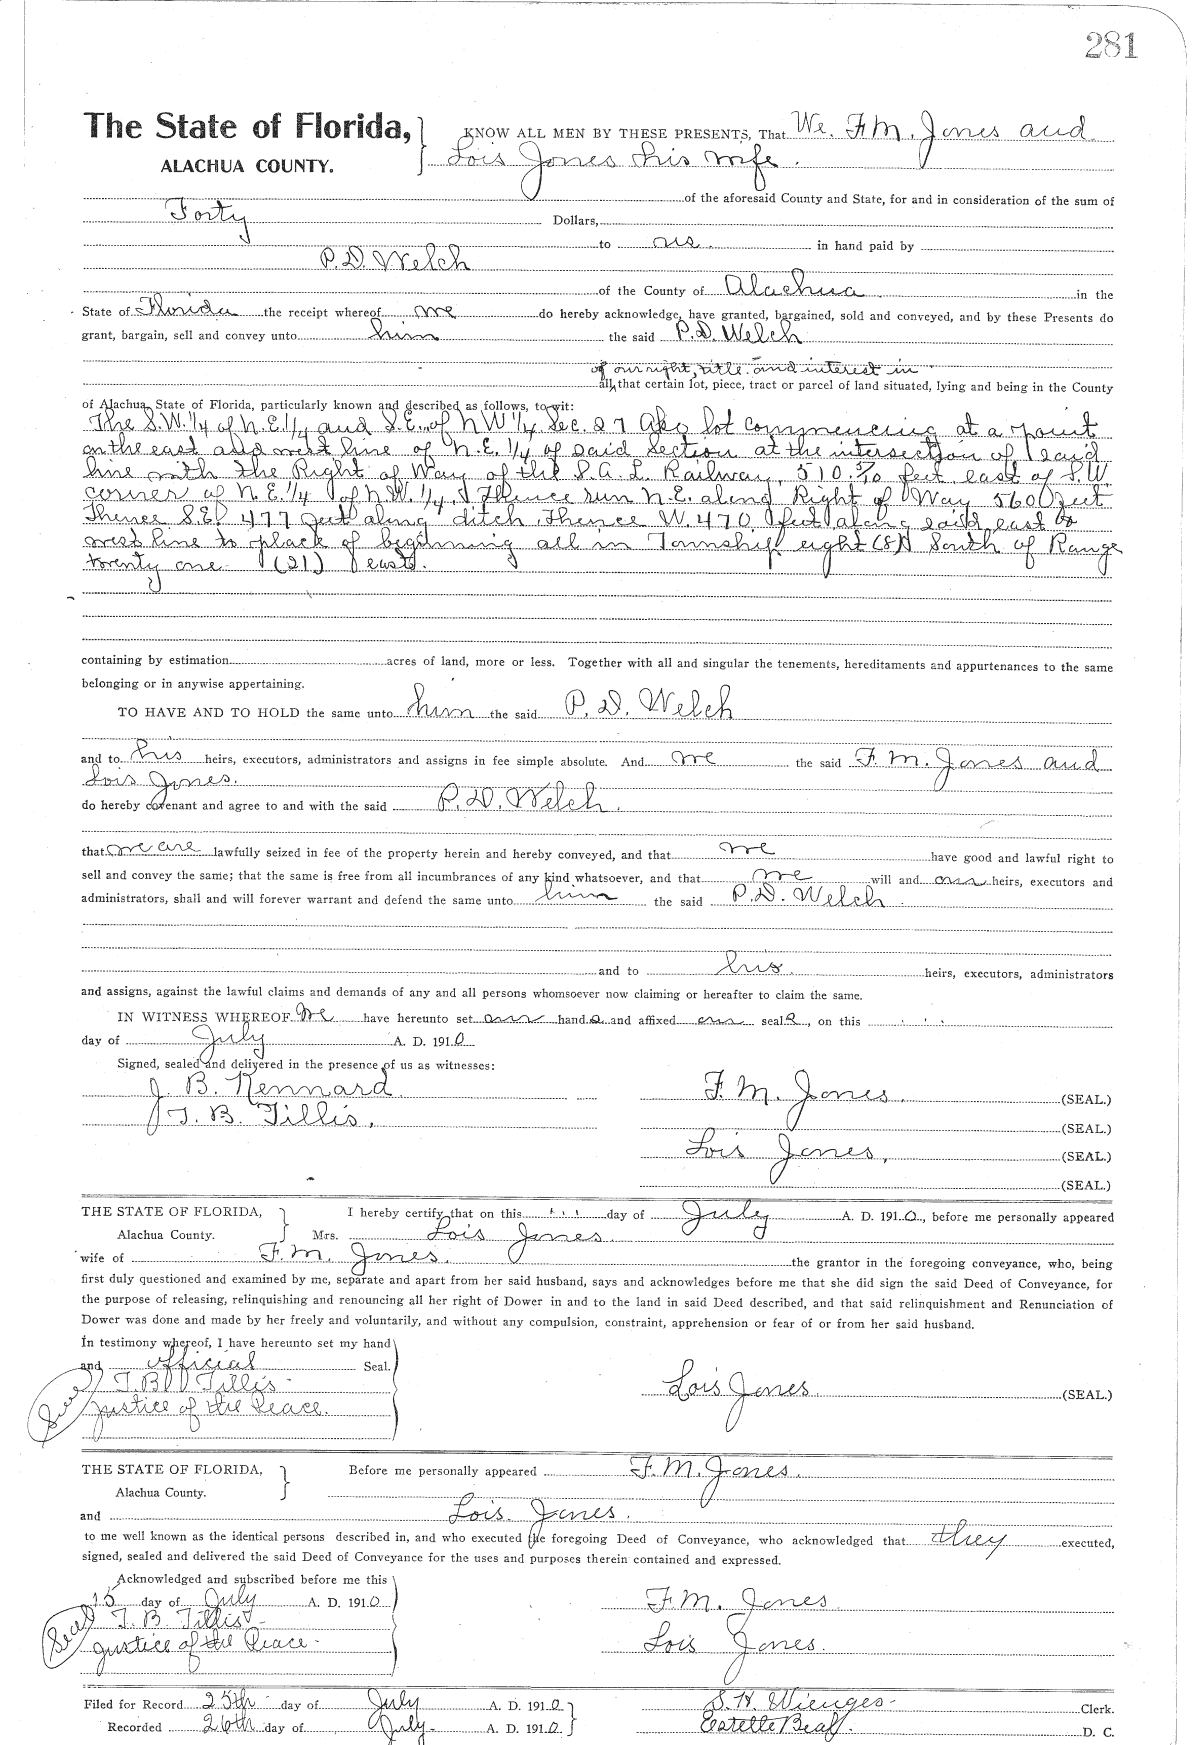 281
The State of Florida, KNOW ALL MEN BY THESE PRESENTS, That We, F.M. Jones and
ALACHUA COUNTY. Lois Jones his wife.
of the aforesaid County and State, for and in consideration of the sum of
Forty Dollars,
to us in hand paid by
P.D. Welch
of the County of Alachua in the
State of Florida the receipt whereof we do hereby acknowledge, have granted, bargained, sold and conveyed, and by these Presents do
grant, bargain, sell and convey unto him the said P.D. Welch
of our right, title and interest in
all, that certain lot, piece, tract or parcel of land situated, lying and being in the County
of Alachua, State of Florida, particularly known and described as follows, to wit:
The S.W. 1/4 of N.E. 1/4 and S.E. of NW 1/4 Sec. 27 Also lot commencing at a point
on the east and west line of N.E. 1/4 of said Section at the intersection of said
line with the Right of Way of the S.A.L. Railway, 510 5/10 feet east of S.W.
corner of N.E. 1/4 of N.W. 1/4, Thence run N.E. along Right of Way 560 feet
Thence S.E. 477 feet along ditch, Thence W. 470 feet along said east &
west line to place of beginning all in Township eight (8) South of Range
twenty one (21) east.
containing by estimation acres of land, more or less. Together with all and singular the tenements, hereditaments and appurtenances to the same
belonging or in anywise appertaining.
TO HAVE AND TO HOLD the same unto him the said P. D. Welch
and to his heirs, executors, administrators and assigns in fee simple absolute. And we the said F. M. Jones and
Lois Jones.
do hereby covenant and agree to and with the said P. D. Welch.
that we are lawfully seized in fee of the property herein and hereby conveyed, and that we have good and lawful right to
sell and convey the same; that the same is free from all incumbrances of any kind whatsoever, and that we will and our heirs, executors and
administrators, shall and will forever warrant and defend the same unto him the said P.D. Welch.
and to his heirs, executors, administrators
and assigns, against the lawful claims and demands of any and all persons whomsoever now claiming or hereafter to claim the same.
IN WITNESS WHEREOF We have hereunto set our hands and affixed our seals, on this . . .
day of July A. D. 1910
Signed, sealed and delivered in the presence of us as witnesses:
J. B. Kennard F. M. Jones. (SEAL.)
T. B. Tillis. (SEAL.)
Lois Jones, (SEAL.)
(SEAL.)
THE STATE OF FLORIDA, I hereby certify that on this . . . day of July A. D. 1910, before me personally appeared
Alachua County. Mrs. Lois Jones.
wife of F. M. Jones. the grantor in the foregoing conveyance, who, being
first duly questioned and examined by me, separate and apart from her said husband, says and acknowledges before me that she did sign the said Deed of Conveyance, for
the purpose of releasing, relinquishing and renouncing all her right of Dower in and to the land in said Deed described, and that said relinquishment and Renunciation of
Dower was done and made by her freely and voluntarily, and without any compulsion, constraint, apprehension or fear of or from her said husband.
In testimony whereof, I have hereunto set my hand
and official Seal.
Seal T.B. Tillis Lois Jones (SEAL.)
Justice of the Peace.
THE STATE OF FLORIDA, Before me personally appeared F.M. Jones.
Alachua County.
and Lois Jones.
to me well known as the identical persons described in, and who executed the foregoing Deed of Conveyance, who acknowledged that they executed,
signed, sealed and delivered the said Deed of Conveyance for the uses and purposes therein contained and expressed.
Acknowledged and subscribed before me this
15 day of July A. D. 1910 F. M. Jones
Seal T. B Tillis
Justice of the Peace Lois Jones.
Filed for Record 25th day of July A. D. 1910 S. H. Wienges Clerk.
Recorded 26th day of July A. D. 1910. Estelle Beal D. C.